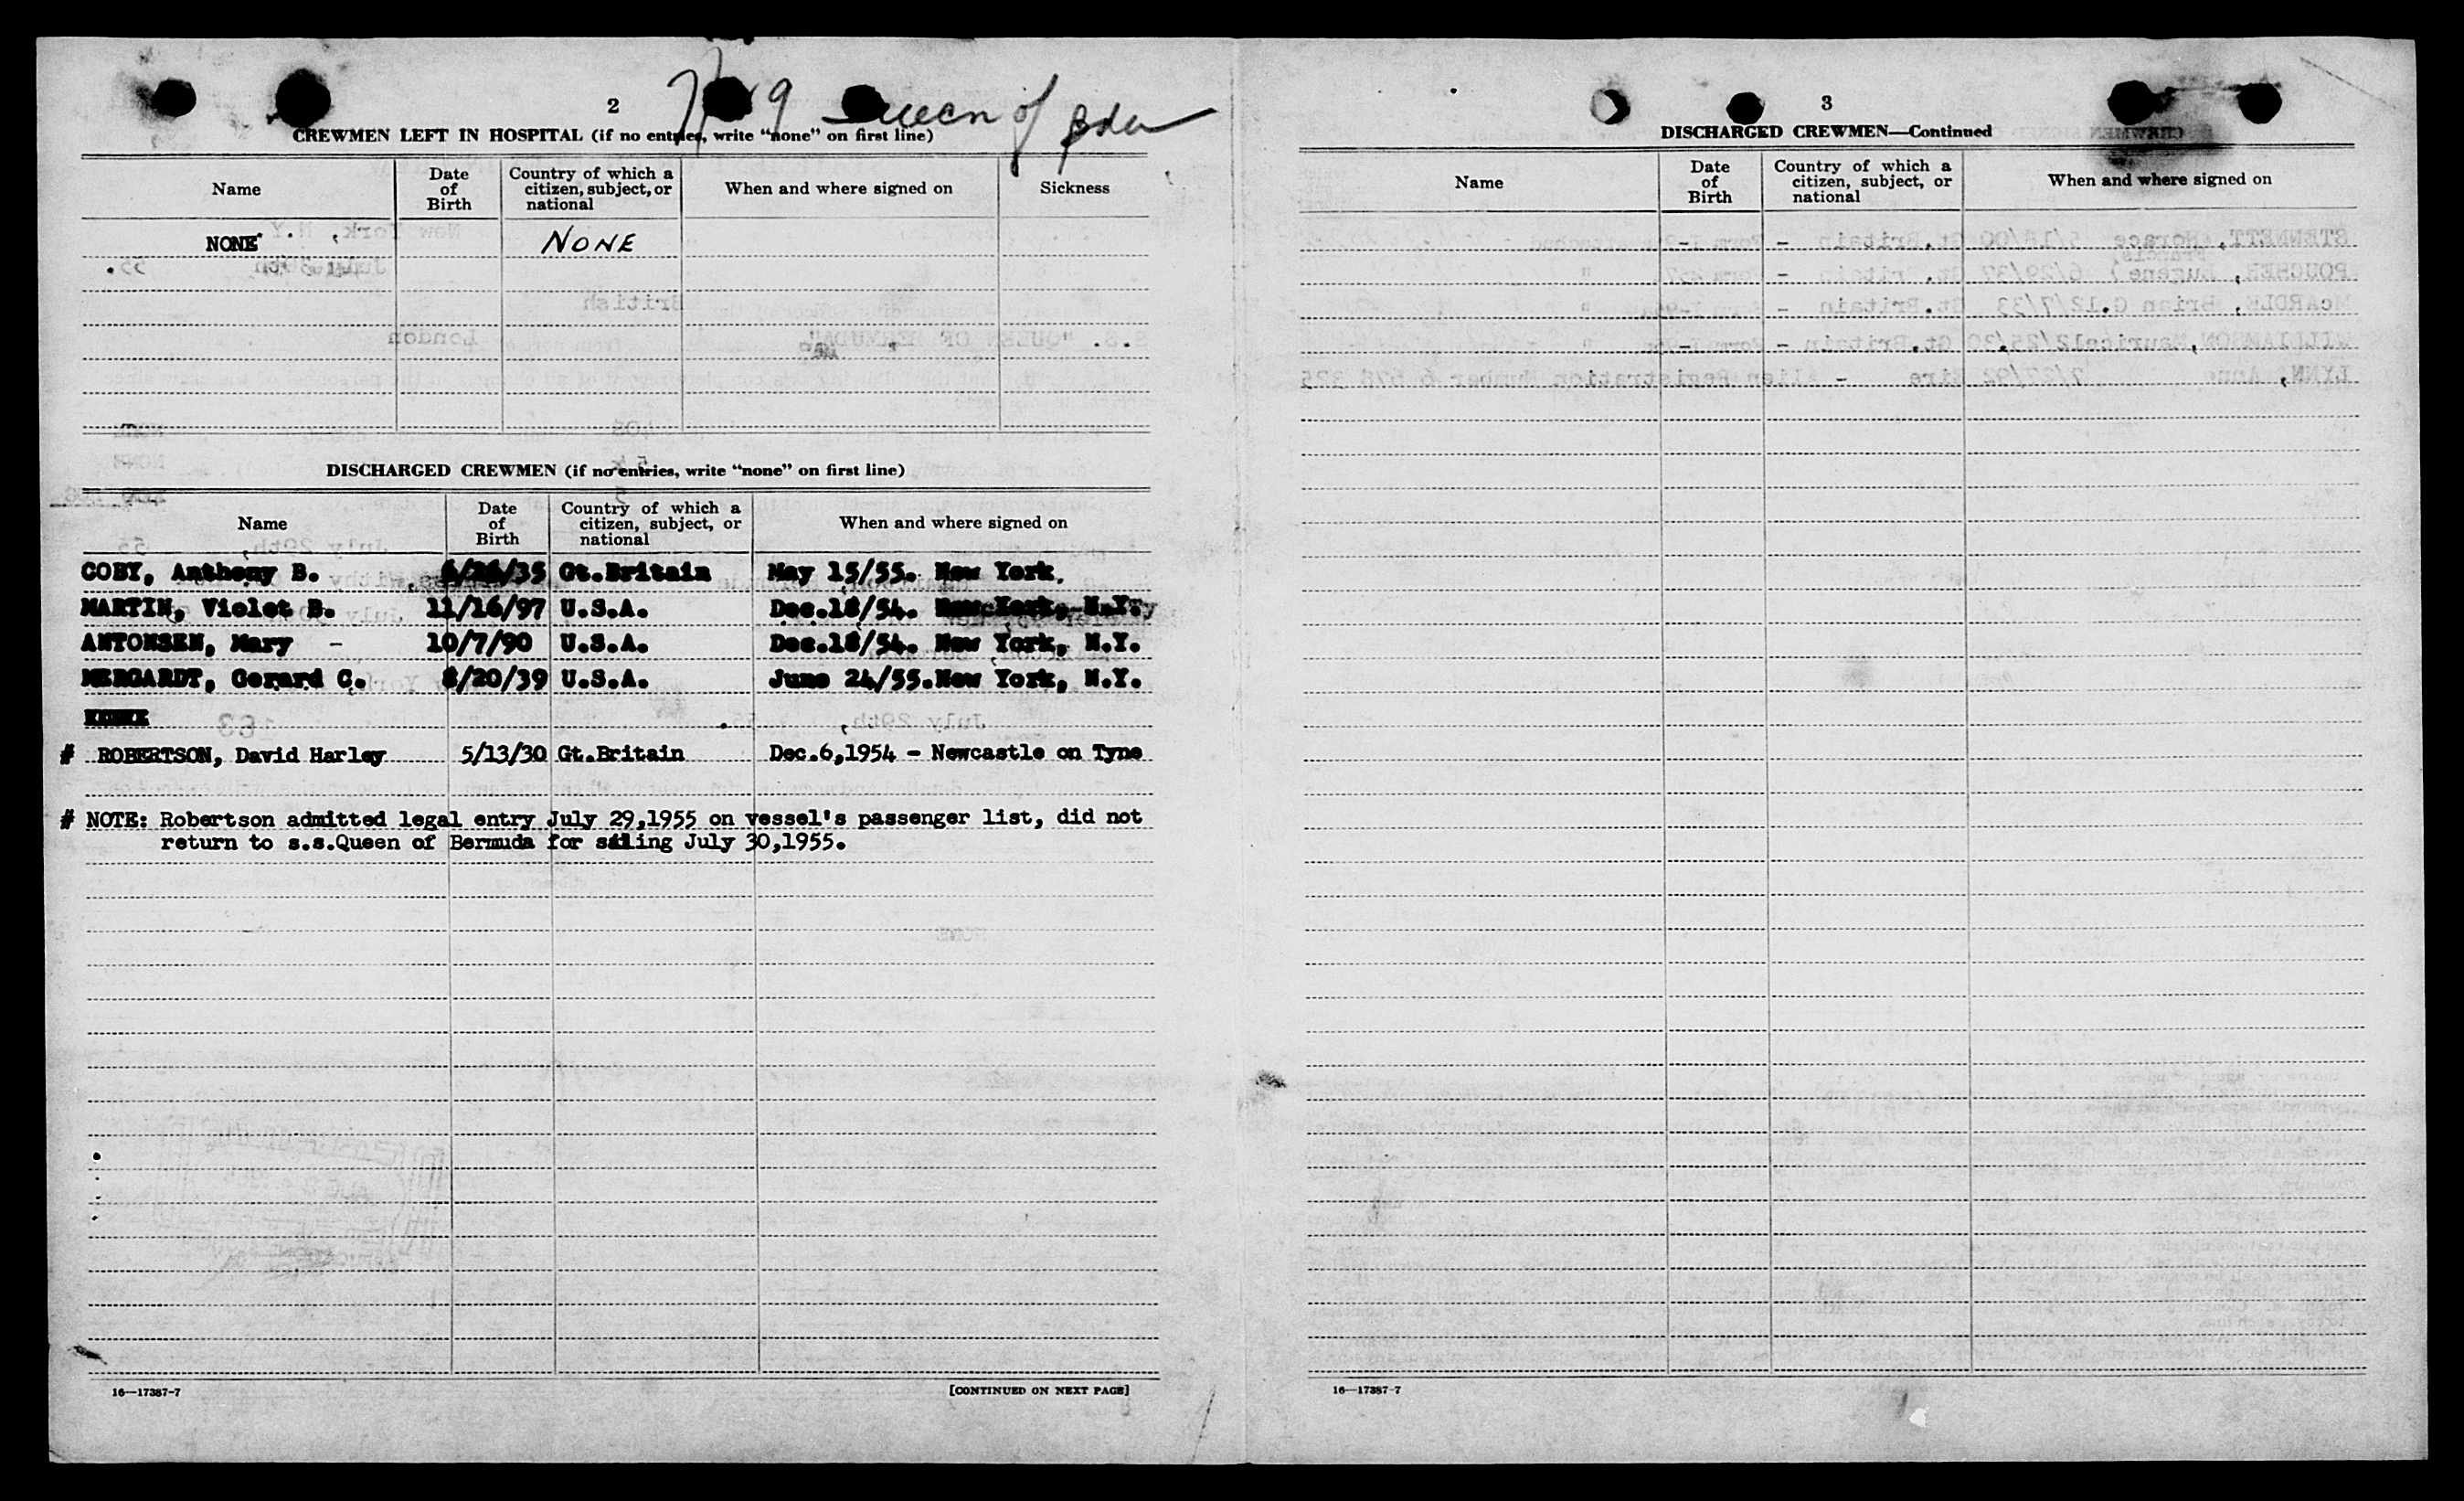 2
9 Queen of Bda
CREWMEN LEFT IN HOSPITAL (if no entries, write "none" on first line)
Name
Date of Birth
Country of which a citizen, subject, or national
When and where signed on
Sickness
NONE
NONE
DISCHARGED CREWMEN (if no entries, write "none" on first line)
Name
Date of Birth
Country of which a citizen, subject, or national
When and where signed on
COBY, Anthony B. 6/26/35 Gt.Britain May 15/55. New York.
MARTIN, Violet B. 11/16/97 U.S.A. Dec.18/54. New York, N.Y.
ANTONSEN, Mary - 10/7/90 U.S.A. Dec.18/54. New York, N.Y.
MERGARDT, Gerard C. 8/20/39 U.S.A. June 24/55.New York, N.Y.
# ROBERTSON, David Harley 5/13/30 Gt.Britain Dec.6,1954 - Newcastle on Tyne
# NOTE: Robertson admitted legal entry July 29,1955 on vessel's passenger list, did not
return to s.s.Queen of Bermuda for sailing July 30,1955.
16—17387-7
[CONTINUED ON NEXT PAGE]
3
DISCHARGED CREWMEN—Continued
Name
Date of Birth
Country of which a citizen, subject, or national
When and where signed on
16—17387-7